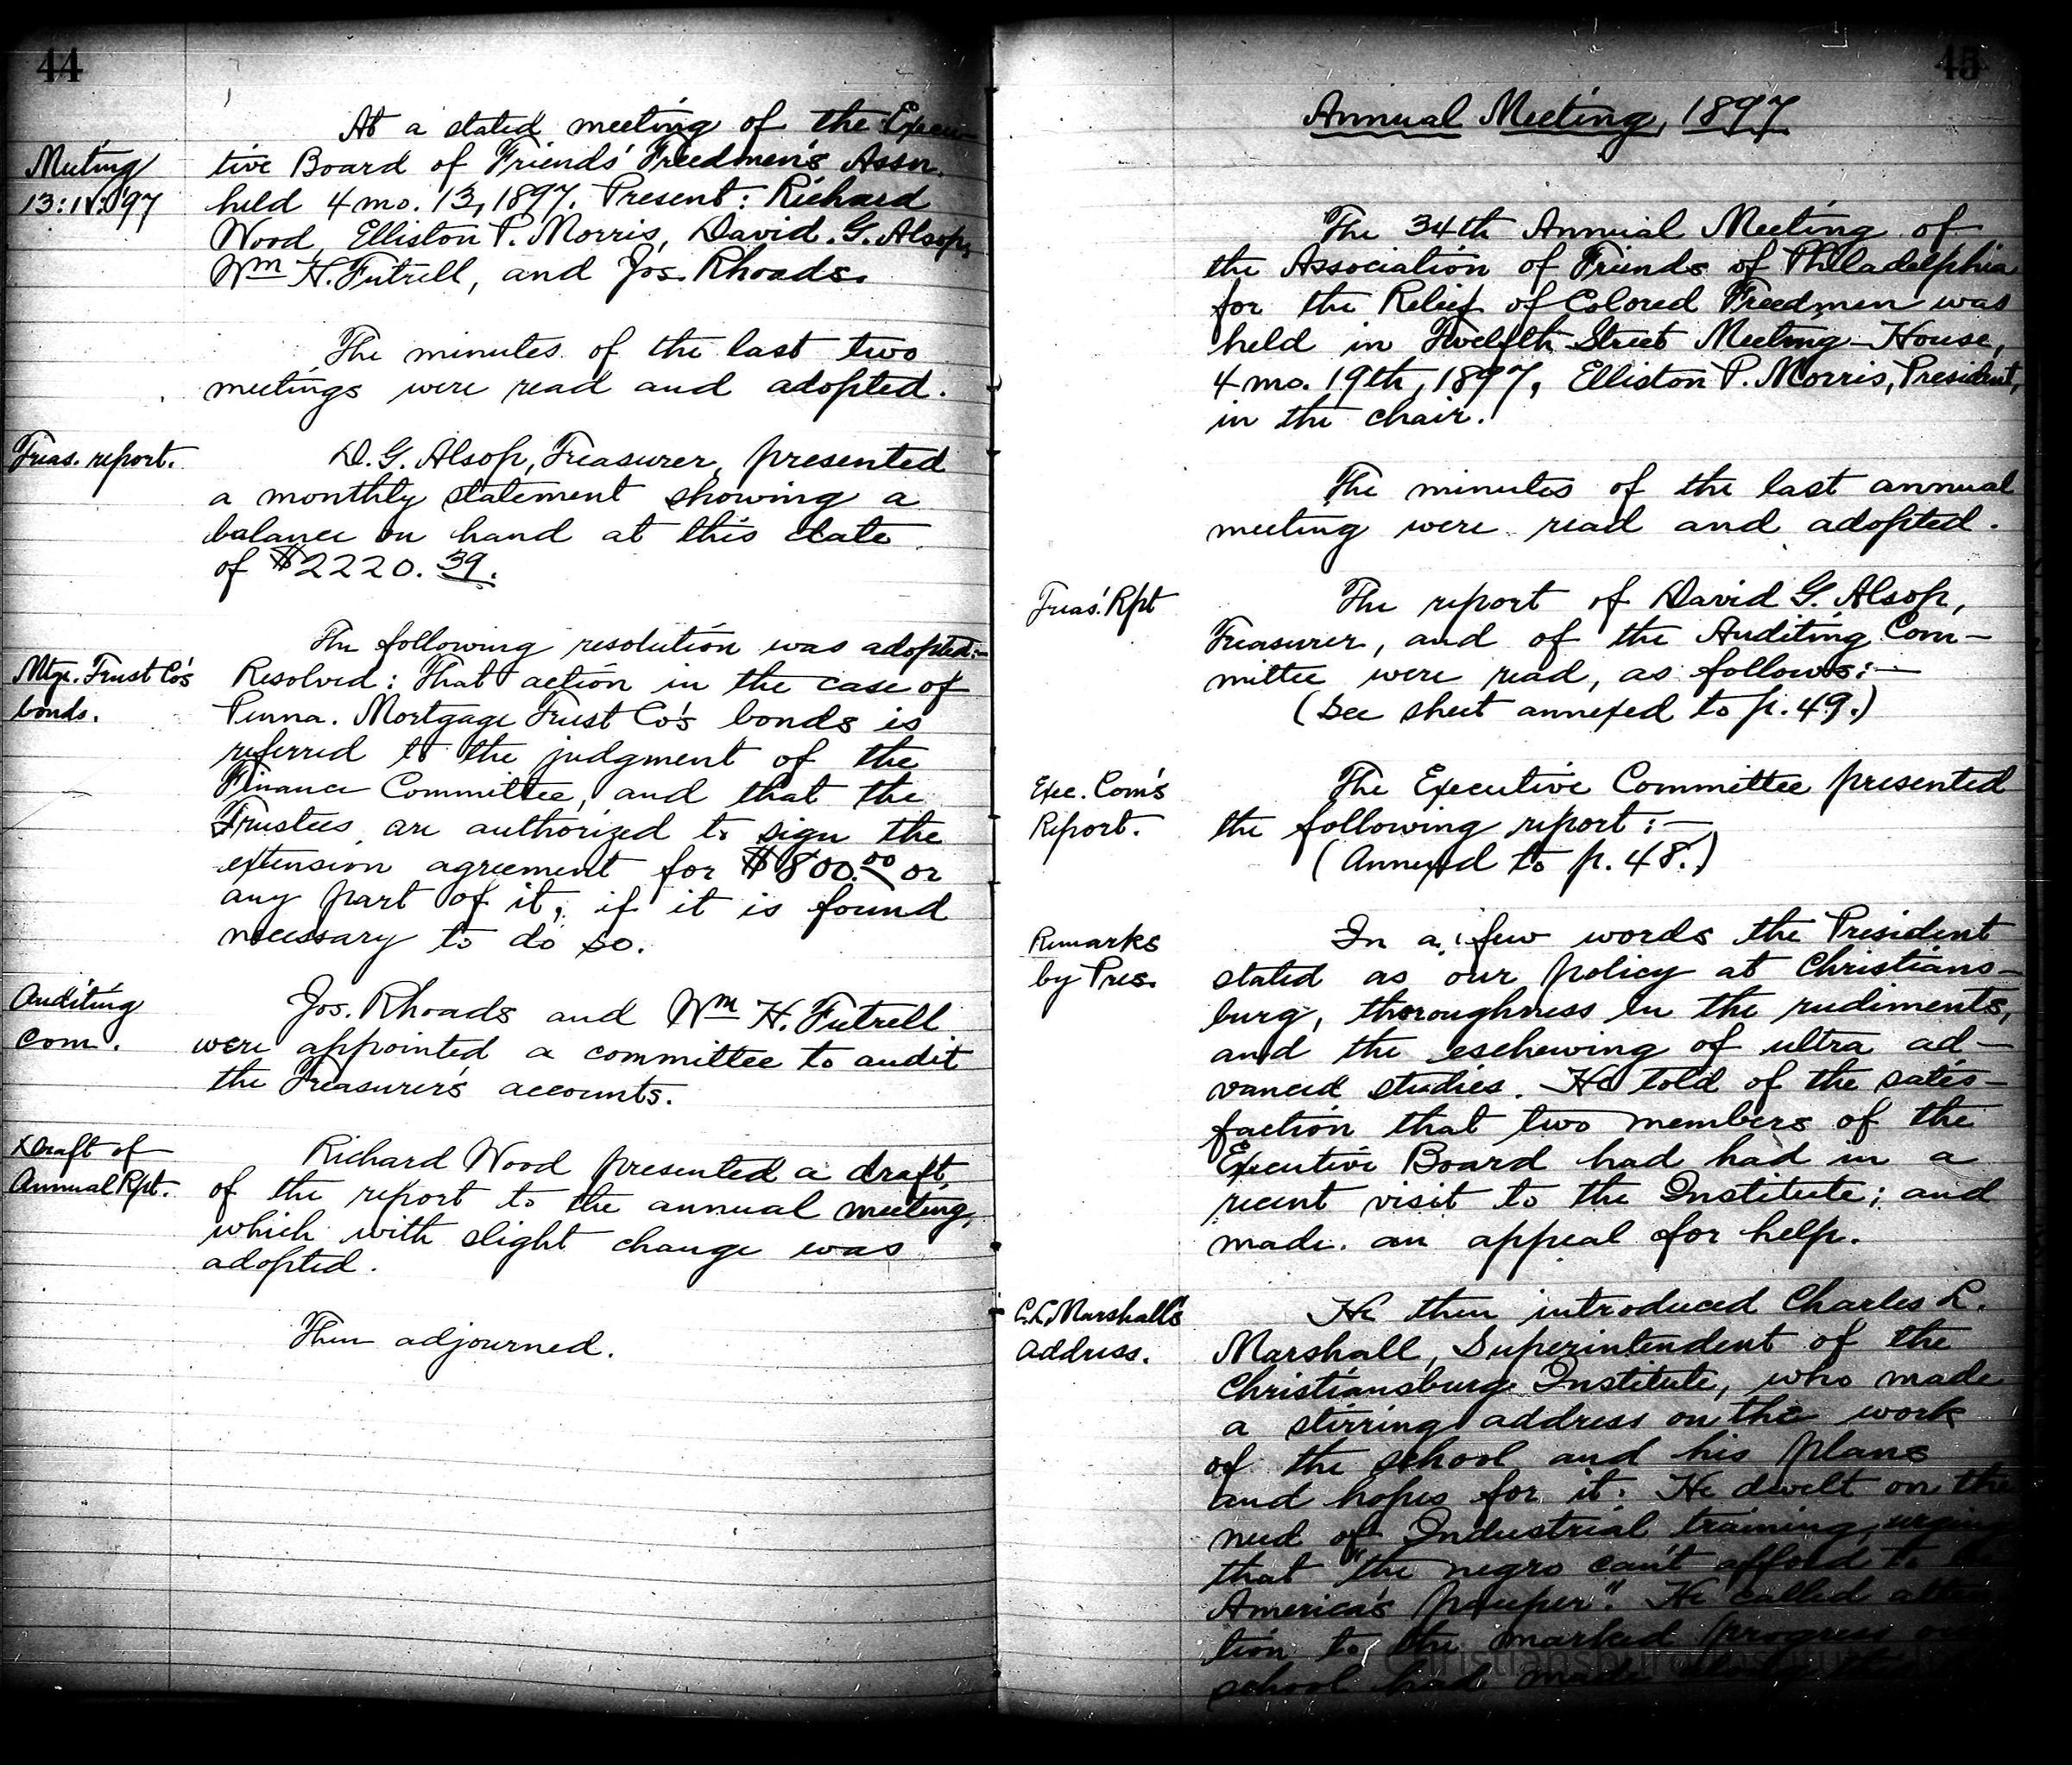 44
At a stated meeting of the Execu-
Meeting
13:IV:97
tive Board of Friends' Freedmen's Assn.
held 4 mo. 13, 1897. Present: Richard
Wood, Elliston P. Morris, David G. Alsop,
Wm H. Futrell, and Jos. Rhoads.
The minutes of the last two
meetings were read and adopted.
Treas. report.
D. G. Alsop, Treasurer, presented
a monthly statement showing a
balance on hand at this date
of $2220.39.
The following resolution was adopted:-
Mtge. Trust Co's
bonds.
Resolved: That action in the case of
Penna. Mortgage Trust Co's bonds is
referred to the judgment of the
Finance Committee, and that the
Trustees are authorized to sign the
extension agreement for $800.00 or
any part of it, if it is found
necessary to do so.
Auditing
Com.
Jos. Rhoads and Wm H. Futrell
were appointed a committee to audit
the Treasurer's accounts.
Draft of
Annual Rpt.
Richard Wood presented a draft
of the report to the annual meeting,
which with slight change was
adopted.
Then adjourned.
45
Annual Meeting, 1897
The 34th Annual Meeting of
the Association of Friends of Philadelphia
for the Relief of Colored Freedmen was
held in Twelfth Street Meeting-House,
4 mo. 19th, 1897, Elliston P. Morris, President,
in the chair.
The minutes of the last annual
meeting were read and adopted.
Treas.' Rpt
The report of David G. Alsop,
Treasurer, and of the Auditing Com-
mittee were read, as follows:-
(See sheet annexed to p. 49.)
Exec. Com's
Report.
The Executive Committee presented
the following report:-
(Annexed to p. 48.)
Remarks
by Pres.
In a few words the President
stated as our policy at Christians-
burg, thoroughness in the rudiments,
and the eschewing of ultra ad-
vanced studies. He told of the satis-
faction that two members of the
Executive Board had had in a
recent visit to the Institute; and
made an appeal for help.
C.L. Marshall's
Address.
He then introduced Charles L.
Marshall, Superintendent of the
Christiansburg Institute, who made
a stirring address on the work
of the school and his plans
and hopes for it. He dwelt on the
need of Industrial training, urging
that "the negro can't afford to be
America's pauper". He called atten
tion to the marked progress our
school had made